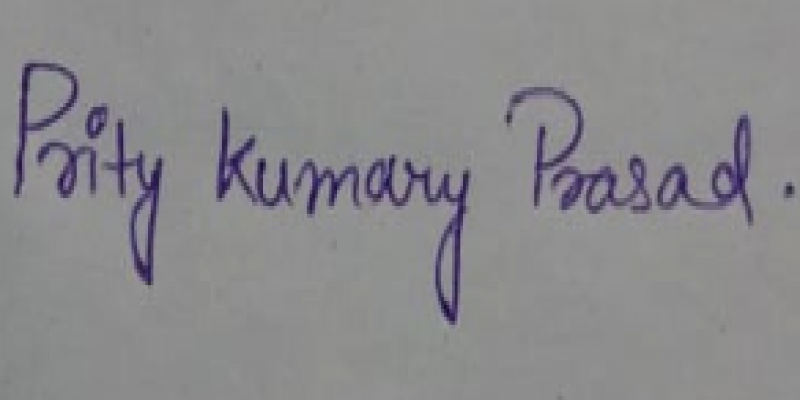 Prity Kumary Prasad.